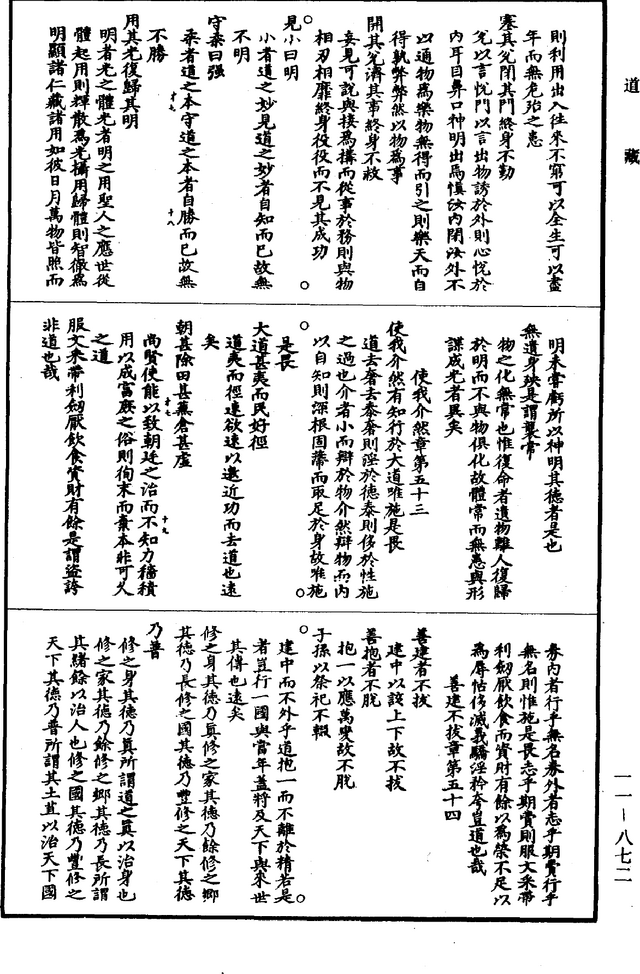 道藏
則利用出入往來不窮可以全生可以盡
年而無危殆之患
塞其兌閉其門終身不勤
兌以言悅門以言出物誘於外則心悅於
內耳目鼻口神明出焉慎汝內閉汝外不
以通物為樂物無得而引之則樂天而自
得孰弊弊然以物為事
開其兌濟其事終身不救
妄見可說與接為搆而從事於務則與物
相刃相靡終身役役而不見其成功
見小曰明
小者道之妙見道之妙者自知而已故無
不明
守柔曰强
柔者道之本守道之本者自勝而已故無
十七
十八
不勝
用其光復歸其明
明者光之體光者明之用聖人之應世從
體起用則輝散為光攝用歸體則智徹為
明顯諸仁藏諸用如彼日月萬物皆照而
明未嘗虧所以神明其德者是也
無遺身殃是謂襲常
物之化無常也惟復命者遺物離人復歸
於明而不與物俱化故體常而無患與形
諜成光者異矣
使我介然章第五十三
使我介然有知行於大道唯施是畏
道去奢去泰奢則淫於德泰則侈於性施
之過也介者小而辯於物介然辯物而內
以自知則深根固蔕而取足於身故唯施
是畏
大道甚夷而民好徑
道夷而徑速欲速以邀近功而去道也遠
矣
朝甚除田甚蕪倉甚虛
十九
尚賢使能以致朝廷之治而不知力穡積
十九
用以成富庶之俗則徇末而棄本非可久
之道
服文采帶利劒厭飲食資財有餘是謂盜誇
非道也哉
券內者行乎無名券外者志乎期費行乎
無名則惟施是畏志乎期費則服文采帶
利劒厭飲食而資財有餘以為榮不足以
為辱怙侈滅義驕淫矜夸豈道也哉
善建不拔章第五十四
善建者不拔
建中以該上下故不拔
善抱者不脫
抱一以應萬變故不脫
子孫以祭祀不輟
建中而不外乎道抱一而不離於精若是
者豈行一國與當年蓋將及天下與來世
其傳也遠矣
修之身其德乃真修之家其德乃餘修之鄉
其德乃長修之國其德乃豐修之天下其德
乃普
修之身其德乃真所謂道之真以治身也
修之家其德乃餘修之鄉其德乃長所謂
其緒餘以治人也修之國其德乃豐修之
天下其德乃普所謂其土苴以治天下國
一一—八七二